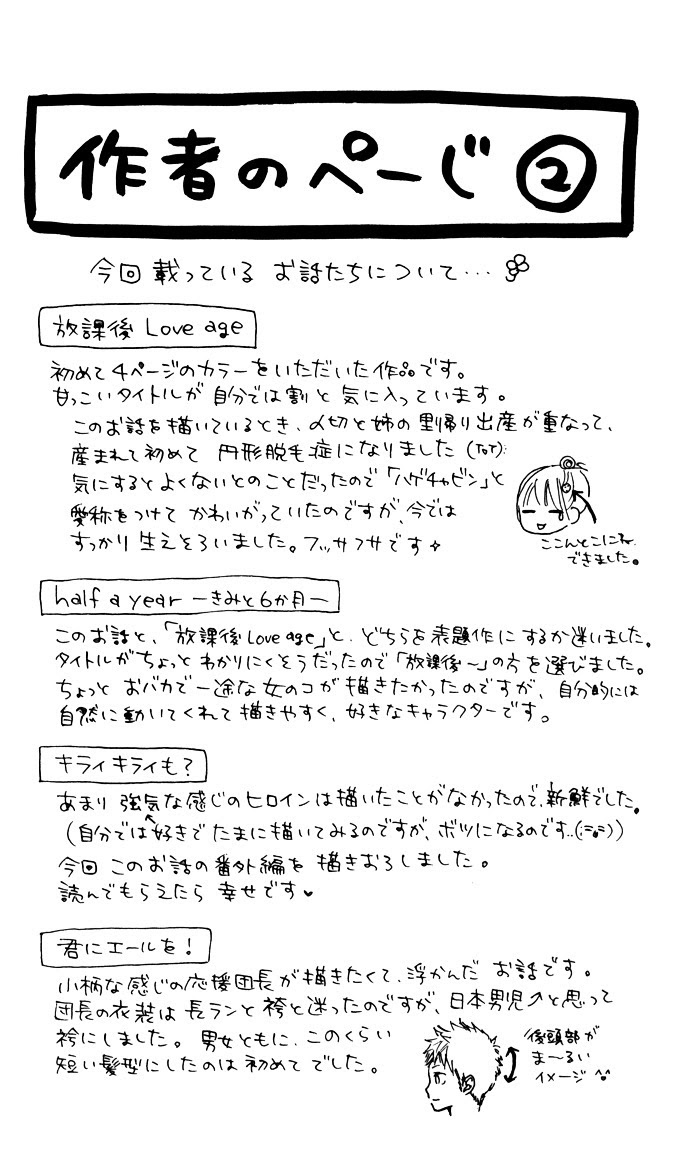 作者のページ②
今回載っている お話たちについて…
放課後 Love age
初めて4ページのカラーをいただいた作品です。
甘っこいタイトルが自分では割と気に入っています。
このお話を描いているとき、〆切と姉の里帰り出産が重なって、
産まれて初めて 円形脱毛症になりました(ToT);
気にするとよくないとのことだったので「ハゲチャビン」と
愛称をつけて かわいがっていたのですが、今では
すっかり生えそろいました。フッサフサです
ここんとこにね、
できました。
half a year ーきみと6か月ー
このお話と、「放課後Love age」と、どちらを表題作にするか迷いました。
タイトルがちょっとわかりにくそうだったので「放課後〜」の方を選びました。
ちょっと おバカで一途な女のコが描きたかったのですが、自分的には
自然に動いてくれて描きやすく、好きなキャラクターです。
キライキライも?
あまり 強気な感じのヒロインは描いたことがなかったので、新鮮でした。
(自分では好きでたまに描いてみるのですが、ボツになるのです…)
今回 このお話の番外編を 描きおろしました。
読んでもらえたら 幸せです♥
君にエールを!
小柄な感じの応援団長が描きたくて、浮かんだ お話です。
団長の衣装は長ランと袴と迷ったのですが、日本男児↗と思って
袴にしました。男女ともに、このくらい
短い髪型にしたのは初めてでした。
後頭部が
ま〜るい
イメージ